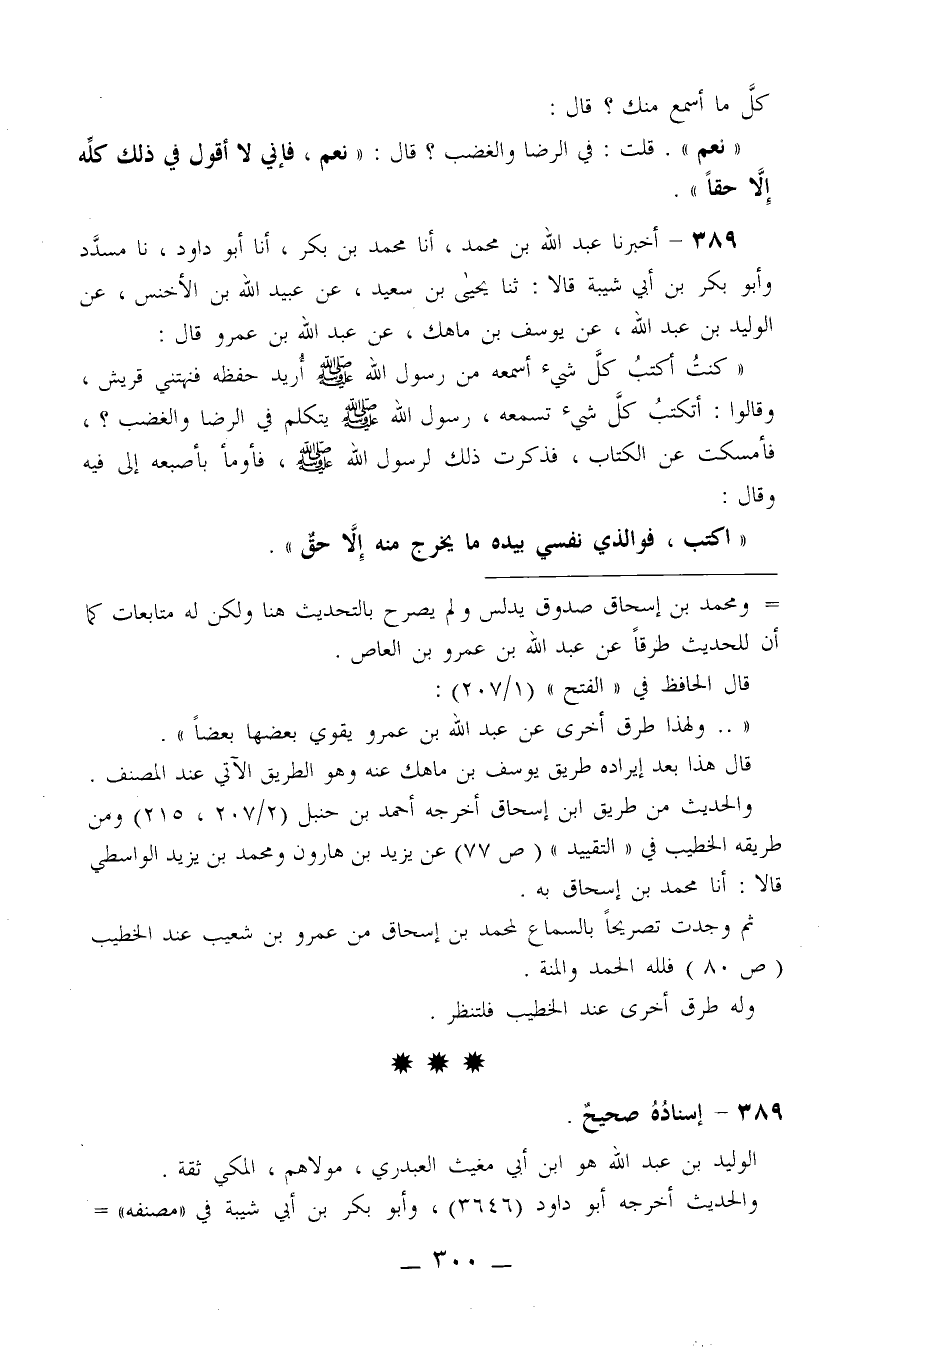 كلَّ ما أسمع منك ؟ قال :
« نعم » . قلت : في الرضا والغضب ؟ قال : « نعم ، فإني لا أقول في ذلك كلِّه
إلَّا حقاً » .
٣٨٩ – أخبرنا عبد الله بن محمد ، أنا محمد بن بكر ، أنا أبو داود ، نا مسدَّد
وأبو بكر بن أبي شيبة قالا : ثنا يحيىٰ بن سعيد ، عن عبيد الله بن الأخنس ، عن
الوليد بن عبد الله ، عن يوسف بن ماهك ، عن عبد الله بن عمرو قال :
« كنتُ أكتبُ كلَّ شيء أسمعه من رسول الله ﷺ أُريد حفظه فنهتني قريش ،
وقالوا : أتكتبُ كلَّ شيء تسمعه ، رسول الله ﷺ يتكلم في الرضا والغضب ؟ ،
فأمسكت عن الكتاب ، فذكرت ذلك لرسول الله ﷺ ، فأومأ بأصبعه إلى فيه
وقال :
« اكتب ، فوالذي نفسي بيده ما يخرج منه إلَّا حقٌ » .
= ومحمد بن إسحاق صدوق يدلس ولم يصرح بالتحديث هنا ولكن له متابعات كما
أن للحديث طرقاً عن عبد الله بن عمرو بن العاص .
قال الحافظ في « الفتح » (٢٠٧/١) :
« .. ولهذا طرق أخرى عن عبد الله بن عمرو يقوي بعضها بعضاً » .
قال هذا بعد إيراده طريق يوسف بن ماهك عنه وهو الطريق الآتي عند المصنف .
والحديث من طريق ابن إسحاق أخرجه أحمد بن حنبل (٢٠٧/٢ ، ٢١٥) ومن
طريقه الخطيب في « التقييد » ( ص ٧٧) عن يزيد بن هارون ومحمد بن يزيد الواسطي
قالا : أنا محمد بن إسحاق به .
ثم وجدت تصريحاً بالسماع لمحمد بن إسحاق من عمرو بن شعيب عند الخطيب
( ص ٨٠ ) فلله الحمد والمنة .
وله طرق أخرى عند الخطيب فلتنظر .
٣٨٩ – إسنادُهُ صحيحٌ .
الوليد بن عبد الله هو ابن أبي مغيث العبدري ، مولاهم ، المكي ثقة .
والحديث أخرجه أبو داود (٣٦٤٦) ، وأبو بكر بن أبي شيبة في «مصنفه» =
— ٣٠٠ —